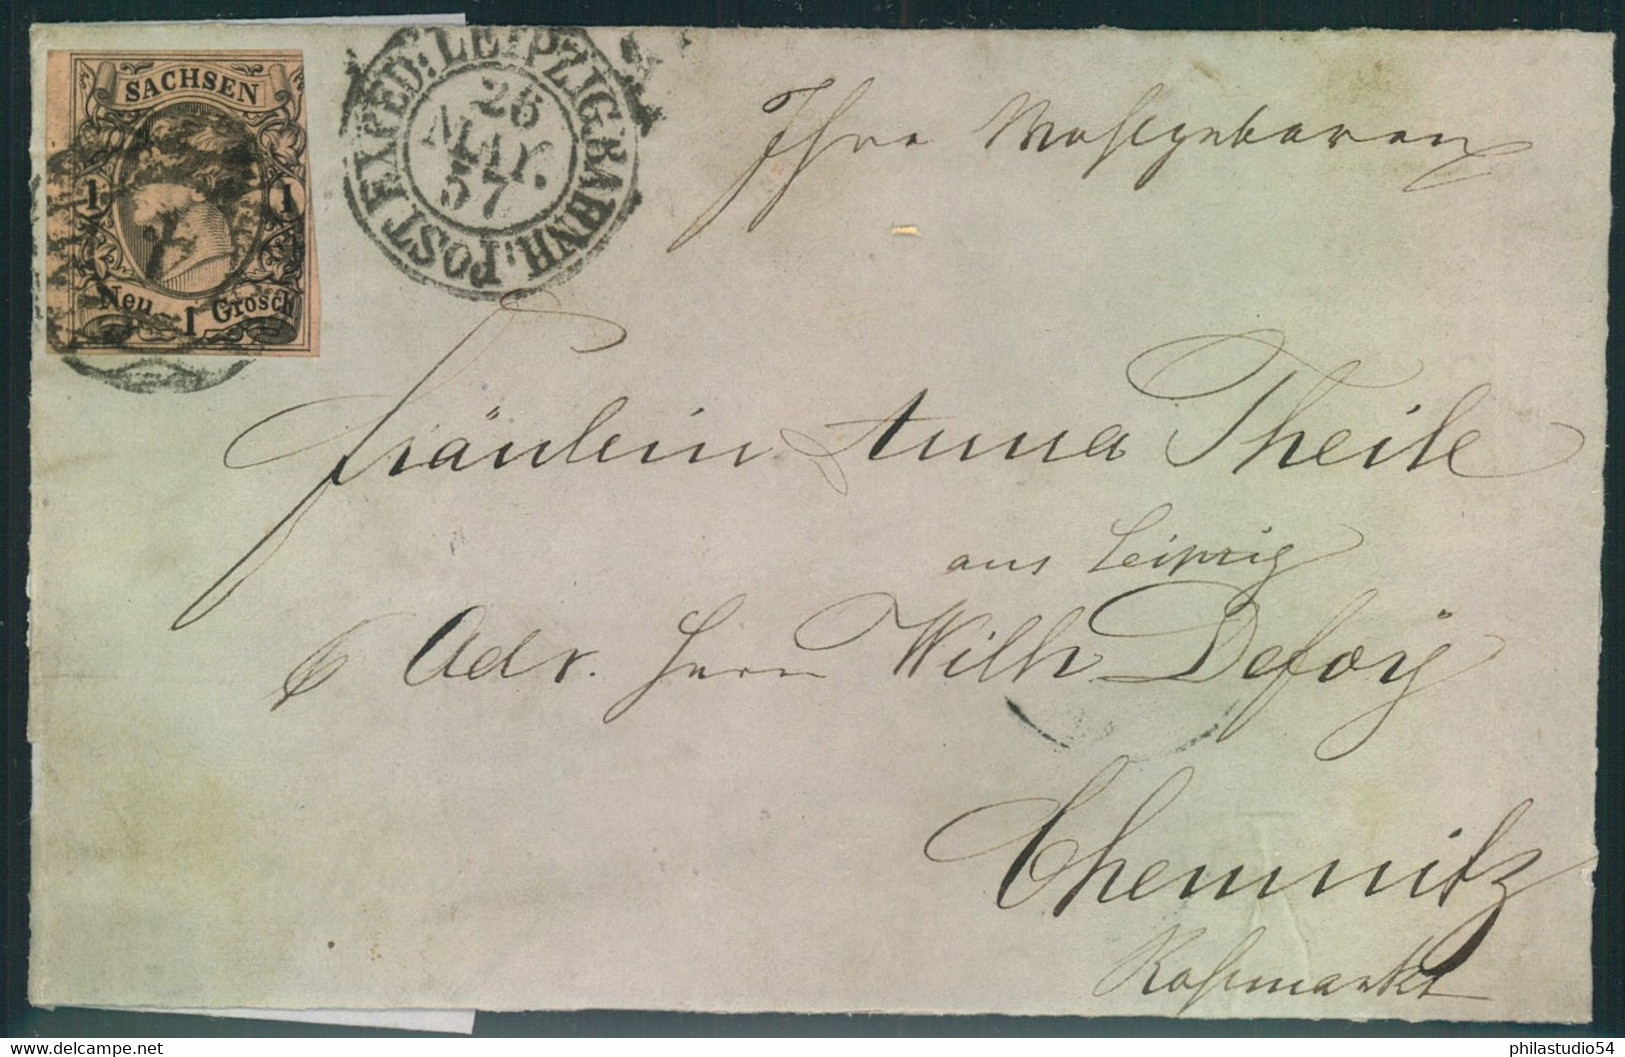 SACHSEN
1 1
Neu 1 Grosch
POST EXPED: LEIPZIG.BAHNH:
26
MAI.
57
Ihre Wohlgeboren
Fräulein Anna Theile
aus Leipzig
Adr. Herrn Wilh Defoÿ
Chemnitz
Roßmarkt
philastudio54